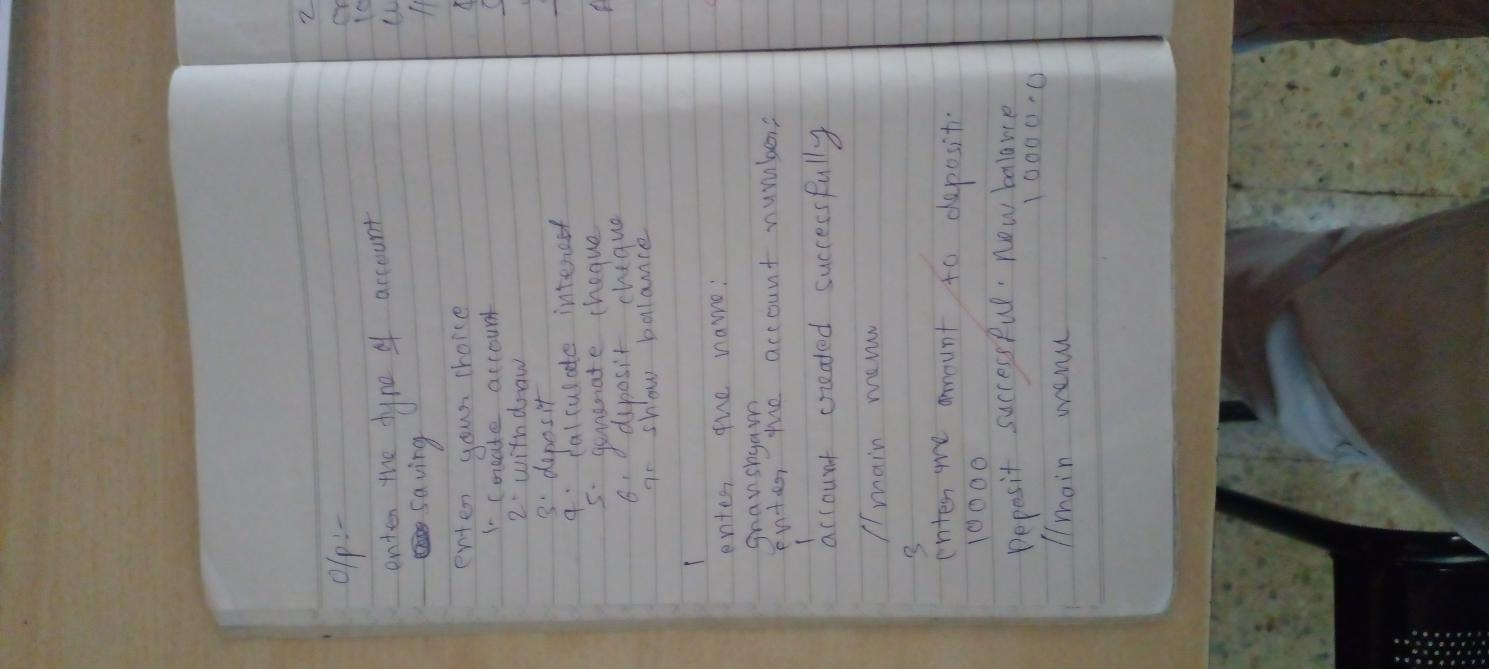 O/p:-
enter the type of account
saving
enter your choice
1. Create account
2. withdraw
3. deposit
4. Calculate interest
5. generate cheque
6. deposit cheque
7. show balance
1
enter the name:
Gnanshyam
enter the account number:
1
account created successfully
//main menu
3
enter the amount to deposit:
10000
Deposit successful. new balance
10000.0
//main menu